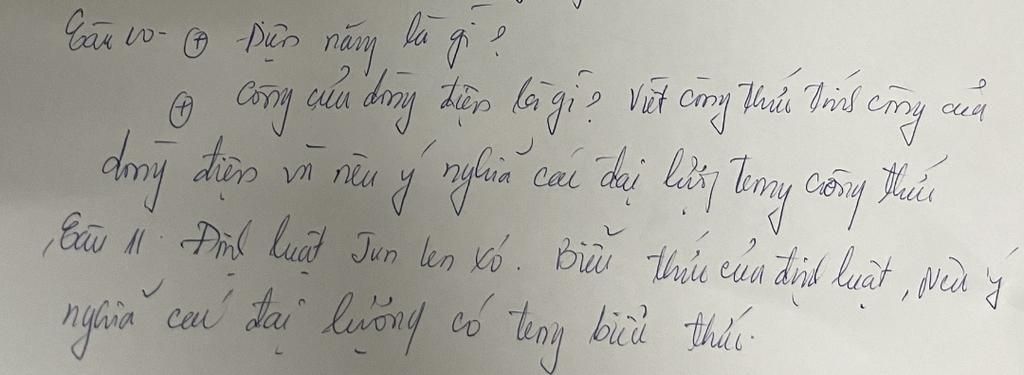 Câu 10- ⊕ Điện năng là gì?
⊕ Công của dòng điện là gì? Viết công thức tính công của
dòng điện và nêu ý nghĩa các đại lượng trong công thức
Câu 11. Định luật Jun len xơ. Biểu thức của định luật, Nêu ý
nghĩa các đại lượng có trong biểu thức.